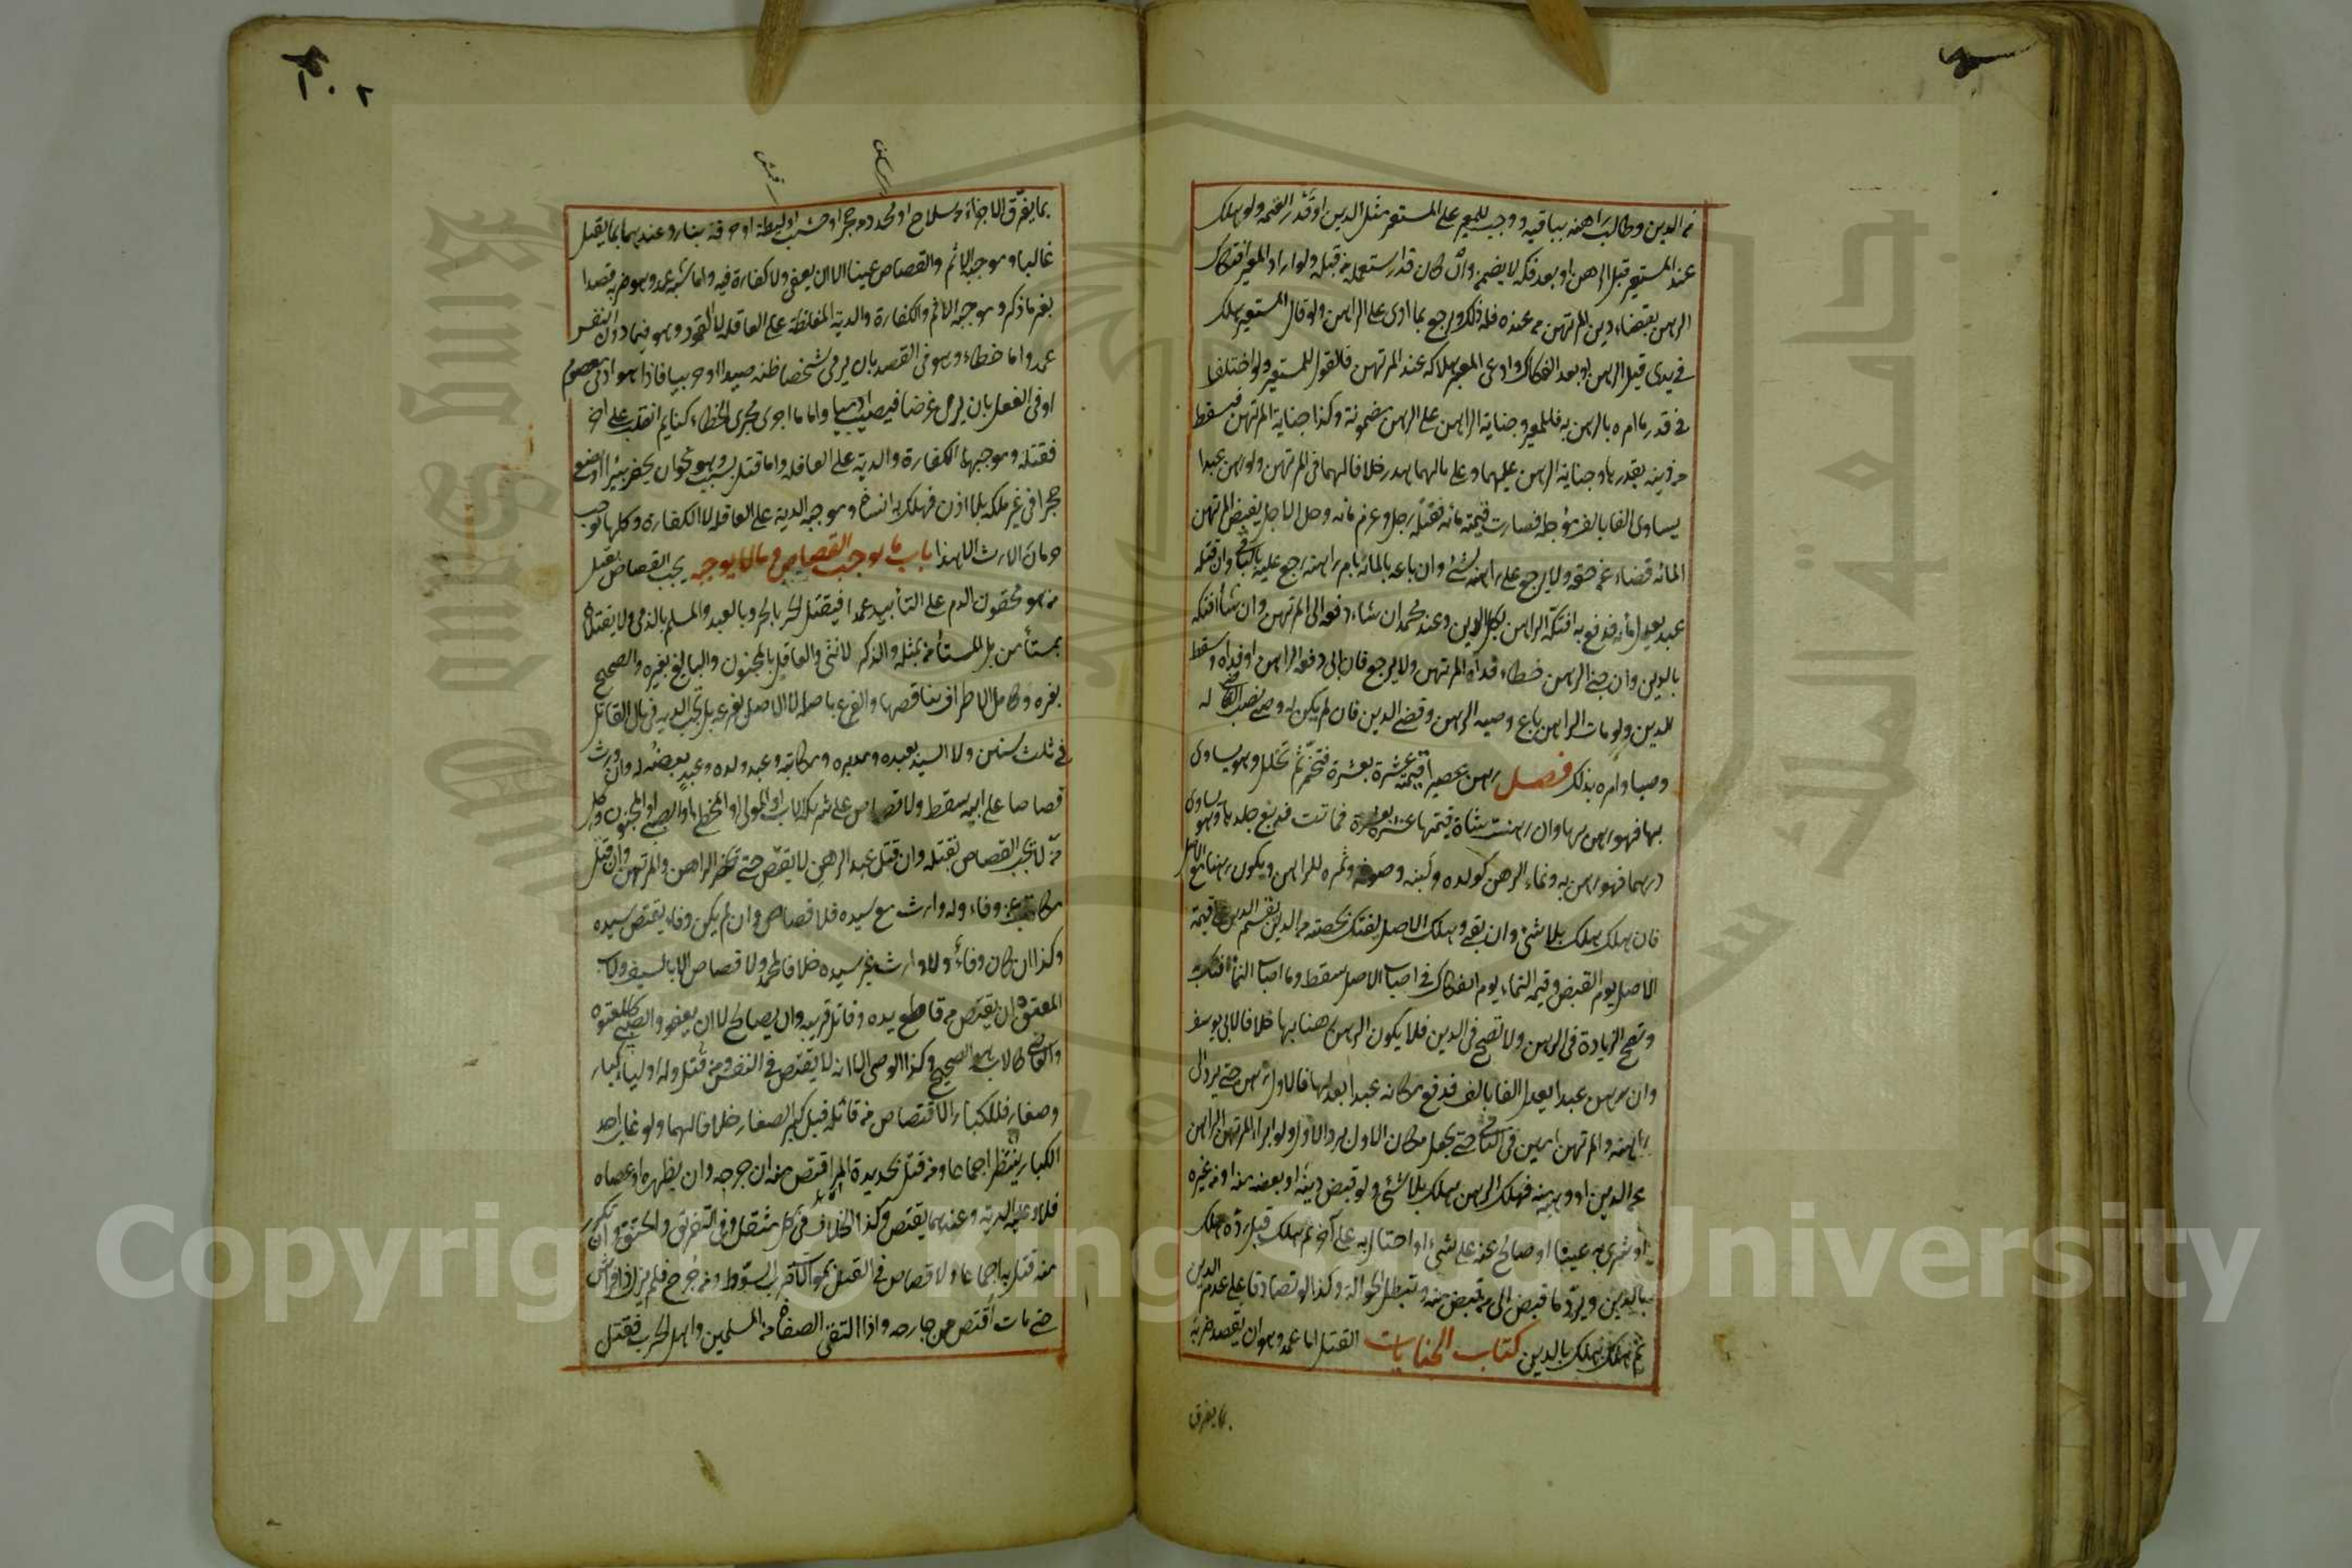 من الدين وطالب راهنه بباقيه ووجب للمعير على المستعير مثل الدين او قدر القيمة ولو هلك
عند المستعير قبل الرهن او بعد فكه لا يضمن وان كان قد استعمله من قبله ولو اراد المعير افتكاك
الرهن بقضاء دين المرتهن من عنده فله ذلك ويرجع بما ادى على الراهن ولو قال المستعير هلك
في يدي قبل الرهن او بعد الفكاك وادعى المعير هلاكه عند المرتهن فالقول للمستعير ولو اختلفا
في قدر ما امره بالرهن به فللمعير وجناية الراهن على الرهن مضمونة وكذا جناية المرتهن فيسقط
من دينه بقدرها وجناية الرهن عليهما وعلى مالهما هدر خلافا لهما في المرتهن ولو رهن عبدا
يساوي الفا بالف مؤجل فصارت قيمته مائة فقتله رجل وغرم مائة وحل الاجل يقبض المرتهن
المائة قضاء عن حقه ولا يرجع على راهنه بشئ وان باعه بالمائة بامر راهنه رجع عليه بالباقي وان قتله
عبد يعدل مائة فدفع به افتكه الراهن بكل الدين وعند محمد ان شاء دفعه الى المرتهن وان شاء افتكه
بالدين وان جنى الرهن خطاء فداه المرتهن ولا يرجع فان ابى دفعه الراهن او فداه وسقط
الدين ولو مات الراهن باع وصيه الرهن وقضى الدين فان لم يكن له وصي نصب القاضي له
وصيا وامره بذلك فصل رهن عصيرا قيمته عشرة بعشرة فتخمر ثم تخلل وهو يساوي
بها فهو رهن بها وان رهنت شاة قيمتها عشرة بعشرة فماتت فدبغ جلدها وهو يساوي
درهما فهو رهن به ونماء الرهن كولده ولبنه وصوفه وثمره للراهن ويكون رهنا مع الاصل
فان هلك هلك بلا شئ وان بقي وهلك الاصل يفتك بحصته من الدين يقسم الدين على قيمة
الاصل يوم القبض وقيمة النماء يوم الفكاك فما اصاب الاصل سقط وما اصاب النماء افتك به
وتصح الزيادة في الرهن ولا تصح في الدين فلا يكون الرهن رهنا بها خلافا لابي يوسف
وان رهن عبدا يعدل الفا بالف فدفع مكانه عبدا يعدلها فالاول رهن حتى يرد الى
راهنه والمرتهن امين في الثاني حتى يجعل مكان الاول برد الاول ولو ابراء المرتهن الراهن
عن الدين او وهبه منه فهلك الرهن يهلك بلا شئ ولو قبض دينه او بعضه منه او من غيره
او شرى به عينا او صالح عنه على شئ او احتال به على آخر ثم هلك قبل رده هلك
بالدين ويرد ما قبض الى من قبض منه وتبطل الحوالة وكذا لو تصادقا على عدم الدين
ثم هلك يهلك بالدين كتاب الجنايات القتل اما عمد وهو ان يقصد ضربه
بما يفرق
بما يفرق الاجزاء من سلاح او محدد من حجر او خشب او ليطة او حرقه بنار وعندهما بما يقتل
غالبا وموجبه الاثم والقصاص عينا الا ان يعفى ولا كفارة فيه واما شبه عمد وهو ضربه قصدا
بغير ما ذكر وموجبه الاثم والكفارة والدية المغلظة على العاقلة لا القود وهو فيما دون النفس
عمد واما خطاء وهو في القصد بان يرمي شخصا ظنه صيدا او حربيا فاذا هو آدمي معصوم
او في الفعل بان يرمي غرضا فيصيب آدميا واما ما اجرى مجرى الخطاء كنايم انقلب على اخر
فقتله وموجبهما الكفارة والدية على العاقلة واما قتل بسبب وهو نحو ان يحفر بئرا او يضع
حجرا في غير ملكه بلا اذن فهلك به انسان وموجبه الدية على العاقلة لا الكفارة وكلها توجب
حرمان الارث الا هذا باب ما يوجب القصاص وما لا يوجبه يجب القصاص بقتل
من هو محقون الدم على التأبيد عمدا فيقتل الحر بالحر وبالعبد والمسلم بالذمي ولا يقتلان
بمستأمن بل المستأمن بمثله والذكر بالانثى والعاقل بالمجنون والبالغ بغيره والصحيح
بغيره وكامل الاطراف بناقصها والفرع باصله لا الاصل بفرعه بل تجب الدية في مال القاتل
في ثلث سنين ولا السيد بعبده ومدبره ومكاتبه وعبد ولده وعبد بعضه له وان ورث
قصاصا على ابيه سقط ولا قصاص على شريك الاب او المولى او المخطئ او الصبي او المجنون وكل
من لا يجب القصاص بقتله وان قتل عبد الرهن لا يقتص حتى يحضر الراهن والمرتهن وان قتل
مكاتب عن وفاء وله وارث مع سيده فلا قصاص وان لم يكن وفاء يقتص سيده
وكذا ان كان وفاء ولا وارث غير سيده خلافا لمحمد ولا قصاص الا بالسيف ولاب
المعتوه ان يقتص من قاطع يده وقاتل قريبه وان يصالح لا ان يعفو والصبي كالمعتوه
والقاضي كالاب هو الصحيح وكذا الوصي الا انه لا يقتص في النفس ومن قتل وله اولياء كبار
وصغار فللكبار الاقتصاص من قاتله قبل كبر الصغار خلافا لهما ولو غاب احد
الكبار ينتظر اجماعا ومن قتل بحديدة المر اقتص منه ان جرحه وان بظهره او عصاه
فلا وعليه الدية وعندهما يقتص وكذا الخلاف في كل مثقل وفي التغريق والخنق وان تكرر
منه قتل به اجماعا ولا قصاص في القتل بموالاة ضرب السوط ومن جرح فلم يزل ذا فراش
حتى مات اقتص من جارحه واذا التقى الصفان من المسلمين واهل الحرب فقتل
Copyright © King Saud University